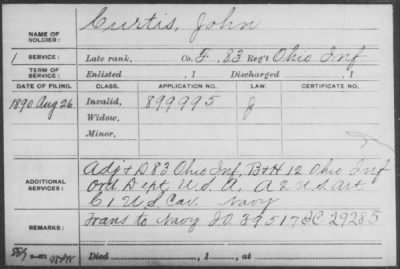 NAME OF SOLDIER: Curtis, John
1 SERVICE: Late rank, Co. F. 83 Reg't Ohio Inf
TERM OF SERVICE: Enlisted , 1 Discharged , 1
DATE OF FILING. CLASS. APPLICATION NO. LAW. CERTIFICATE NO.
1890 Aug 26. Invalid, 899995 J
Widow,
Minor,
ADDITIONAL SERVICES: Adj & D 83 Ohio Inf, B & H 12 Ohio Inf
Ord Dept U.S.A. A 2 U.S. Art
C 1 U.S. Cav. Navy
REMARKS: Trans to Navy I.O. 39517 IC 29285
Died , 1 , at